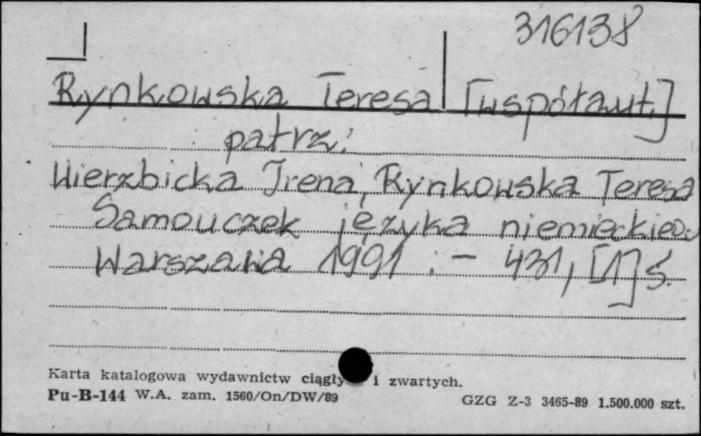 316138
Rynkowska Teresa [współaut.]
patrz:
Wierzbicka Irena, Rynkowska Teresa
Samouczek języka niemieckiego
Warszawa 1991 . - 431, [1] s.
Karta katalogowa wydawnictw ciągły i zwartych.
Pu-B-144 W.A. zam. 1560/On/DW/89 GZG Z-3 3465-89 1.500.000 szt.